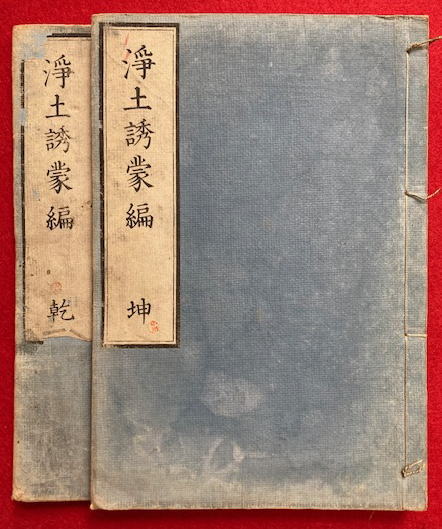 淨土誘蒙編 坤
淨土誘蒙編 乾